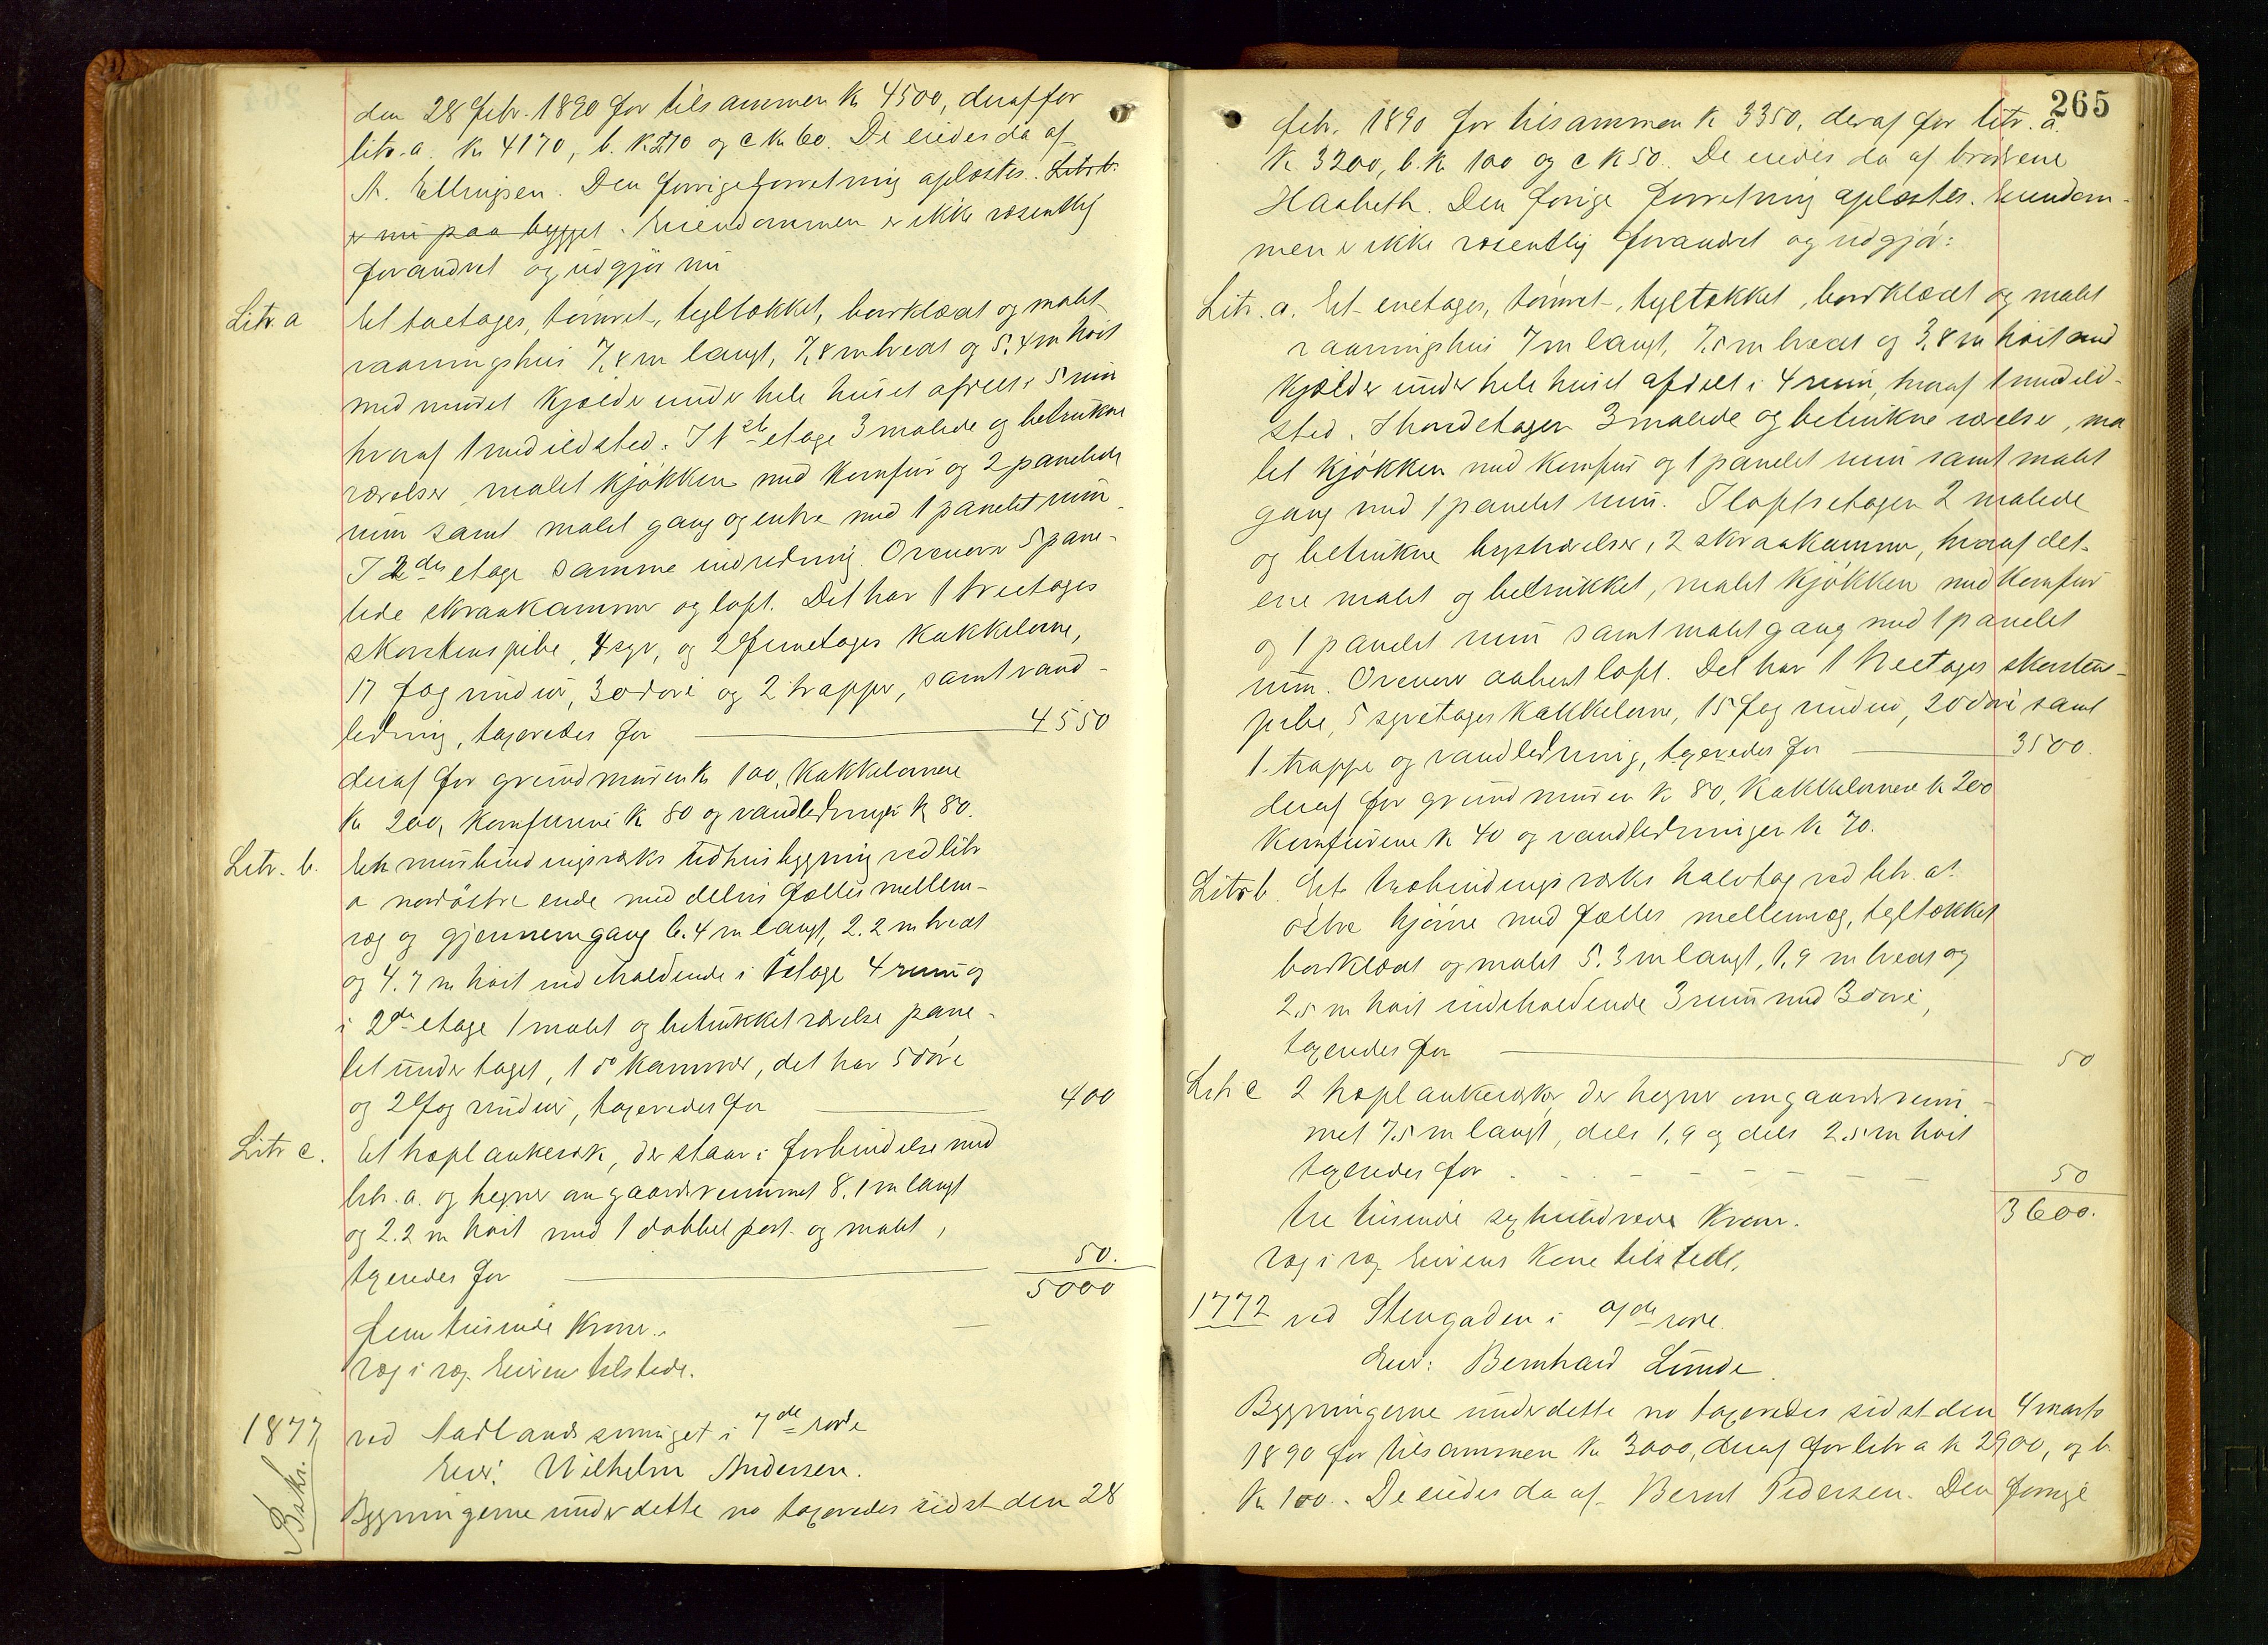 den 28 febr. 1890 for tilsammen kr 4500, deraf for
litr. a. kr 4170, b. k. 270 og c kr 60. De eiedes da af
A. Ellingsen. Den forrige forretning oplæstes. Litr b.
er nu paa bygget. Eiendommen er ikke væsentlig
forandret og udgjør nu
Litr. a Et toetages, tømret, tegltækket, bordklædt og malet
vaaningshus 7,8 m langt, 7,8 m bredt og 5,4 m høit
med muret kjælder under hele huset afdelt i 5 rum
hvoraf 1 med ildsted. I 1ste etage 3 malede og betrukne
værelser malet kjøkken med komfur og 2 panelede
rum samt malet gang og entre med 1 panelet rum.
I 2den etage samme indredning. Ovenover 5 pane-
lede skraakammer og loft. Det har 1 treetages
skorstenspibe, 4 syv, og 2 femetages kakkelovne,
17 fag vinduer, 30 døre og 2 trapper, samt vand-
ledning, taxeredes for 4550
deraf for grundmuren kr 100, kakkelovnene
kr 200, komfurene kr 80 og vandledningen kr 80.
Litr. b. En mur bindingsværks udhusbygning ved litr
a nordøstre ende med delvis fælles mellem-
væg og gjennemgang 6.4 m langt, 2.2 m bredt
og 4.7 m høit indeholdende i 1 etage 4 rum og
i 2den etage 1 malet og betrukket værelse pane-
let under taget, 1 do kammer, det har 5 døre
og 2 fag vinduer, taxeredes for 400
Litr c. Et træplankeværk, der staar i forbindelse med
litr. a. og hegner om gaardsrummet 8.1 m langt
og 2.2 m høit med 1 dobbel port og malet,
taxeredes for 50.
5000
fem tusinde Kroner.
væg i væg. Eieren tilstede.
1877 ved Aadlandssmuget i 7de rode
Eier: Wilhelm Andersen.
Bskr.
Bygningerne under dette no taxeredes sidst den 28
265
febr. 1890 for tilsammen kr 3350, deraf for litr. a.
kr 3200, b. kr 100 og c kr 50. De eiedes da af brødrene
Haabeth. Den forrige forretning oplæstes. Eiendom-
men er ikke væsentlig forandret og udgjør:
Litr. a. Et enetages, tømret, tegltækket, bordklædt og malet
vaaningshus 7 m langt, 7,5 m bredt og 3,8 m høit med
kjælder under hele huset afdelt i 4 rum, hvoraf 1 med ild-
sted. I hovedetagen 3 malede og betrukne værelser, ma
let kjøkken med komfur og 1 panelet rum samt malet
gang med 1 panelet rum. I loftsetagen 2 malede
og betrukne kvistværelser, 2 skraakammer, hvoraf det
ene malet og betrukket, malet kjøkken med komfur
og 1 panelet rum samt malet gang med 1 panelet
rum. Ovenover aabent loft. Det har 1 treetages skorstens-
pibe, 5 syvetages kakkelovne, 15 fag vinduer, 20 døre samt
1 trappe og vandledning, taxeredes for 3500.
deraf for grundmuren kr 80, kakkelovnene kr 200
komfurene kr 40 og vandledningen kr 70.
Litr b. Et træbindingsværks halvtag ved litr. a's
østre hjørne med fælles mellemvæg, tegltækket
bordklædt og malet 5.3 m langt, 1,9 m bredt og
2,5 m høit indeholdende 3 rum med 3 døre,
taxeredes for 50
Litr c 2 træplankeværker, der hegner om gaardsrum-
met 7.5 m langt, dels 1,9 og dels 2.5 m høit
taxeredes for 50
3600.
tre tusinde sexhundrede Kroner.
væg i væg. Eierens kone tilstede.
1772 ved Stengaden i 9de rode.
Eier: Bernhard Lunde.
Bygningerne under dette no taxeredes sidst den 4 marts
1890 for tilsammen kr 3000, deraf for litr a kr 2900, og b
kr 100. De eiedes da af Bernt Pedersen. Den forrige